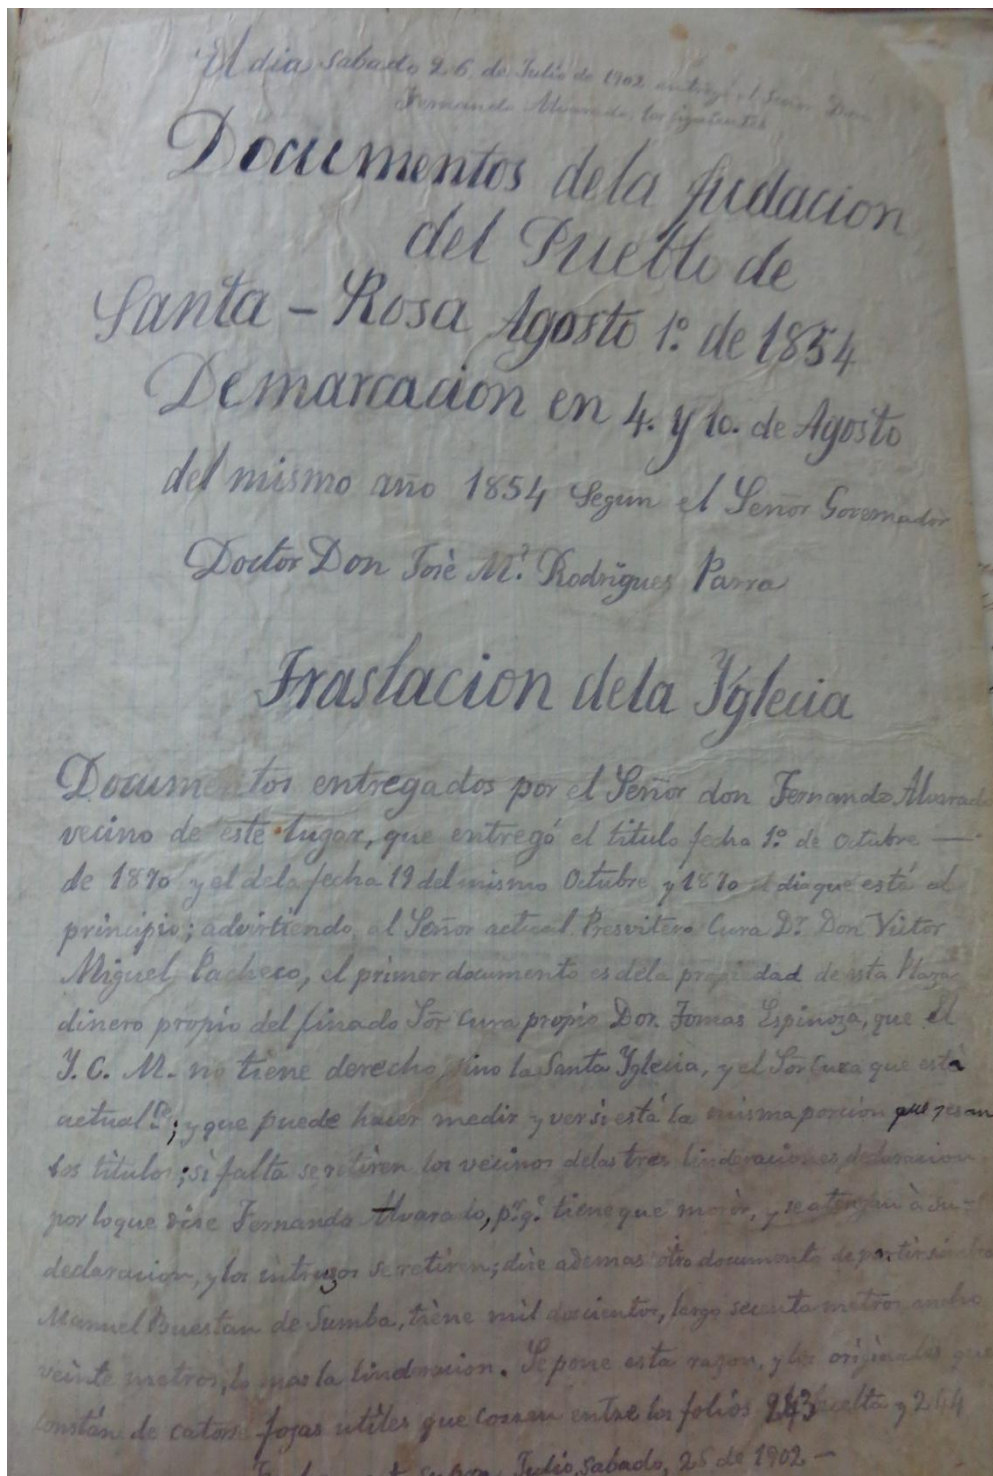 El dia sabado 26 de Julio de 1902 entregó el Señor Don
Fernando Alvarado, los siguientes
Documentos dela fudacion
del Pueblo de
Santa - Rosa Agosto 1º de 1854
Demarcacion en 4. y 10. de Agosto
del mismo año 1854 Segun el Señor Governador
Doctor Don José Mª. Rodrigues Parra
Traslacion dela Yglecia
Documentos entregados por el Señor don Fernando Alvarado
vecino de este lugar, que entregó el titulo fecha 1º de Octubre —
de 1870 y el dela fecha 19 del mismo Octubre y 1870 el dia que está al
principio; advirtiendo al Señor actual Presvitero Cura Dr Don Victor
Miguel Pacheco, el primer documento es dela propiedad de esta Plaza
dinero propio del finado Sor Cura propio Dor. Tomas Espinoza, que el
Y. C. M. no tiene derecho, sino la Santa Yglecia, y el Sor Cura que está
actual.te; y que puede hacer medir y ver si está la misma porcion que resan
los titulos; si falta se retiren los vecinos delas tres linderaciones declaracion
por loque dice Fernando Alvarado, pr. q.e tiene que morir, y se atengan à su-
declaracion, y los intrusos se retiren; dice ademas otro documento de partir
Manuel Buestan de Sumba, tiene mil docientos, largo secenta metros ancho
veinte metros, lo mas la linderacion. Se pone esta razon, y los originales que
constán de catorse fojas utiles que corren entre los folios 243 vuelta y 244
Julio, sabado, 26 de 1902 —